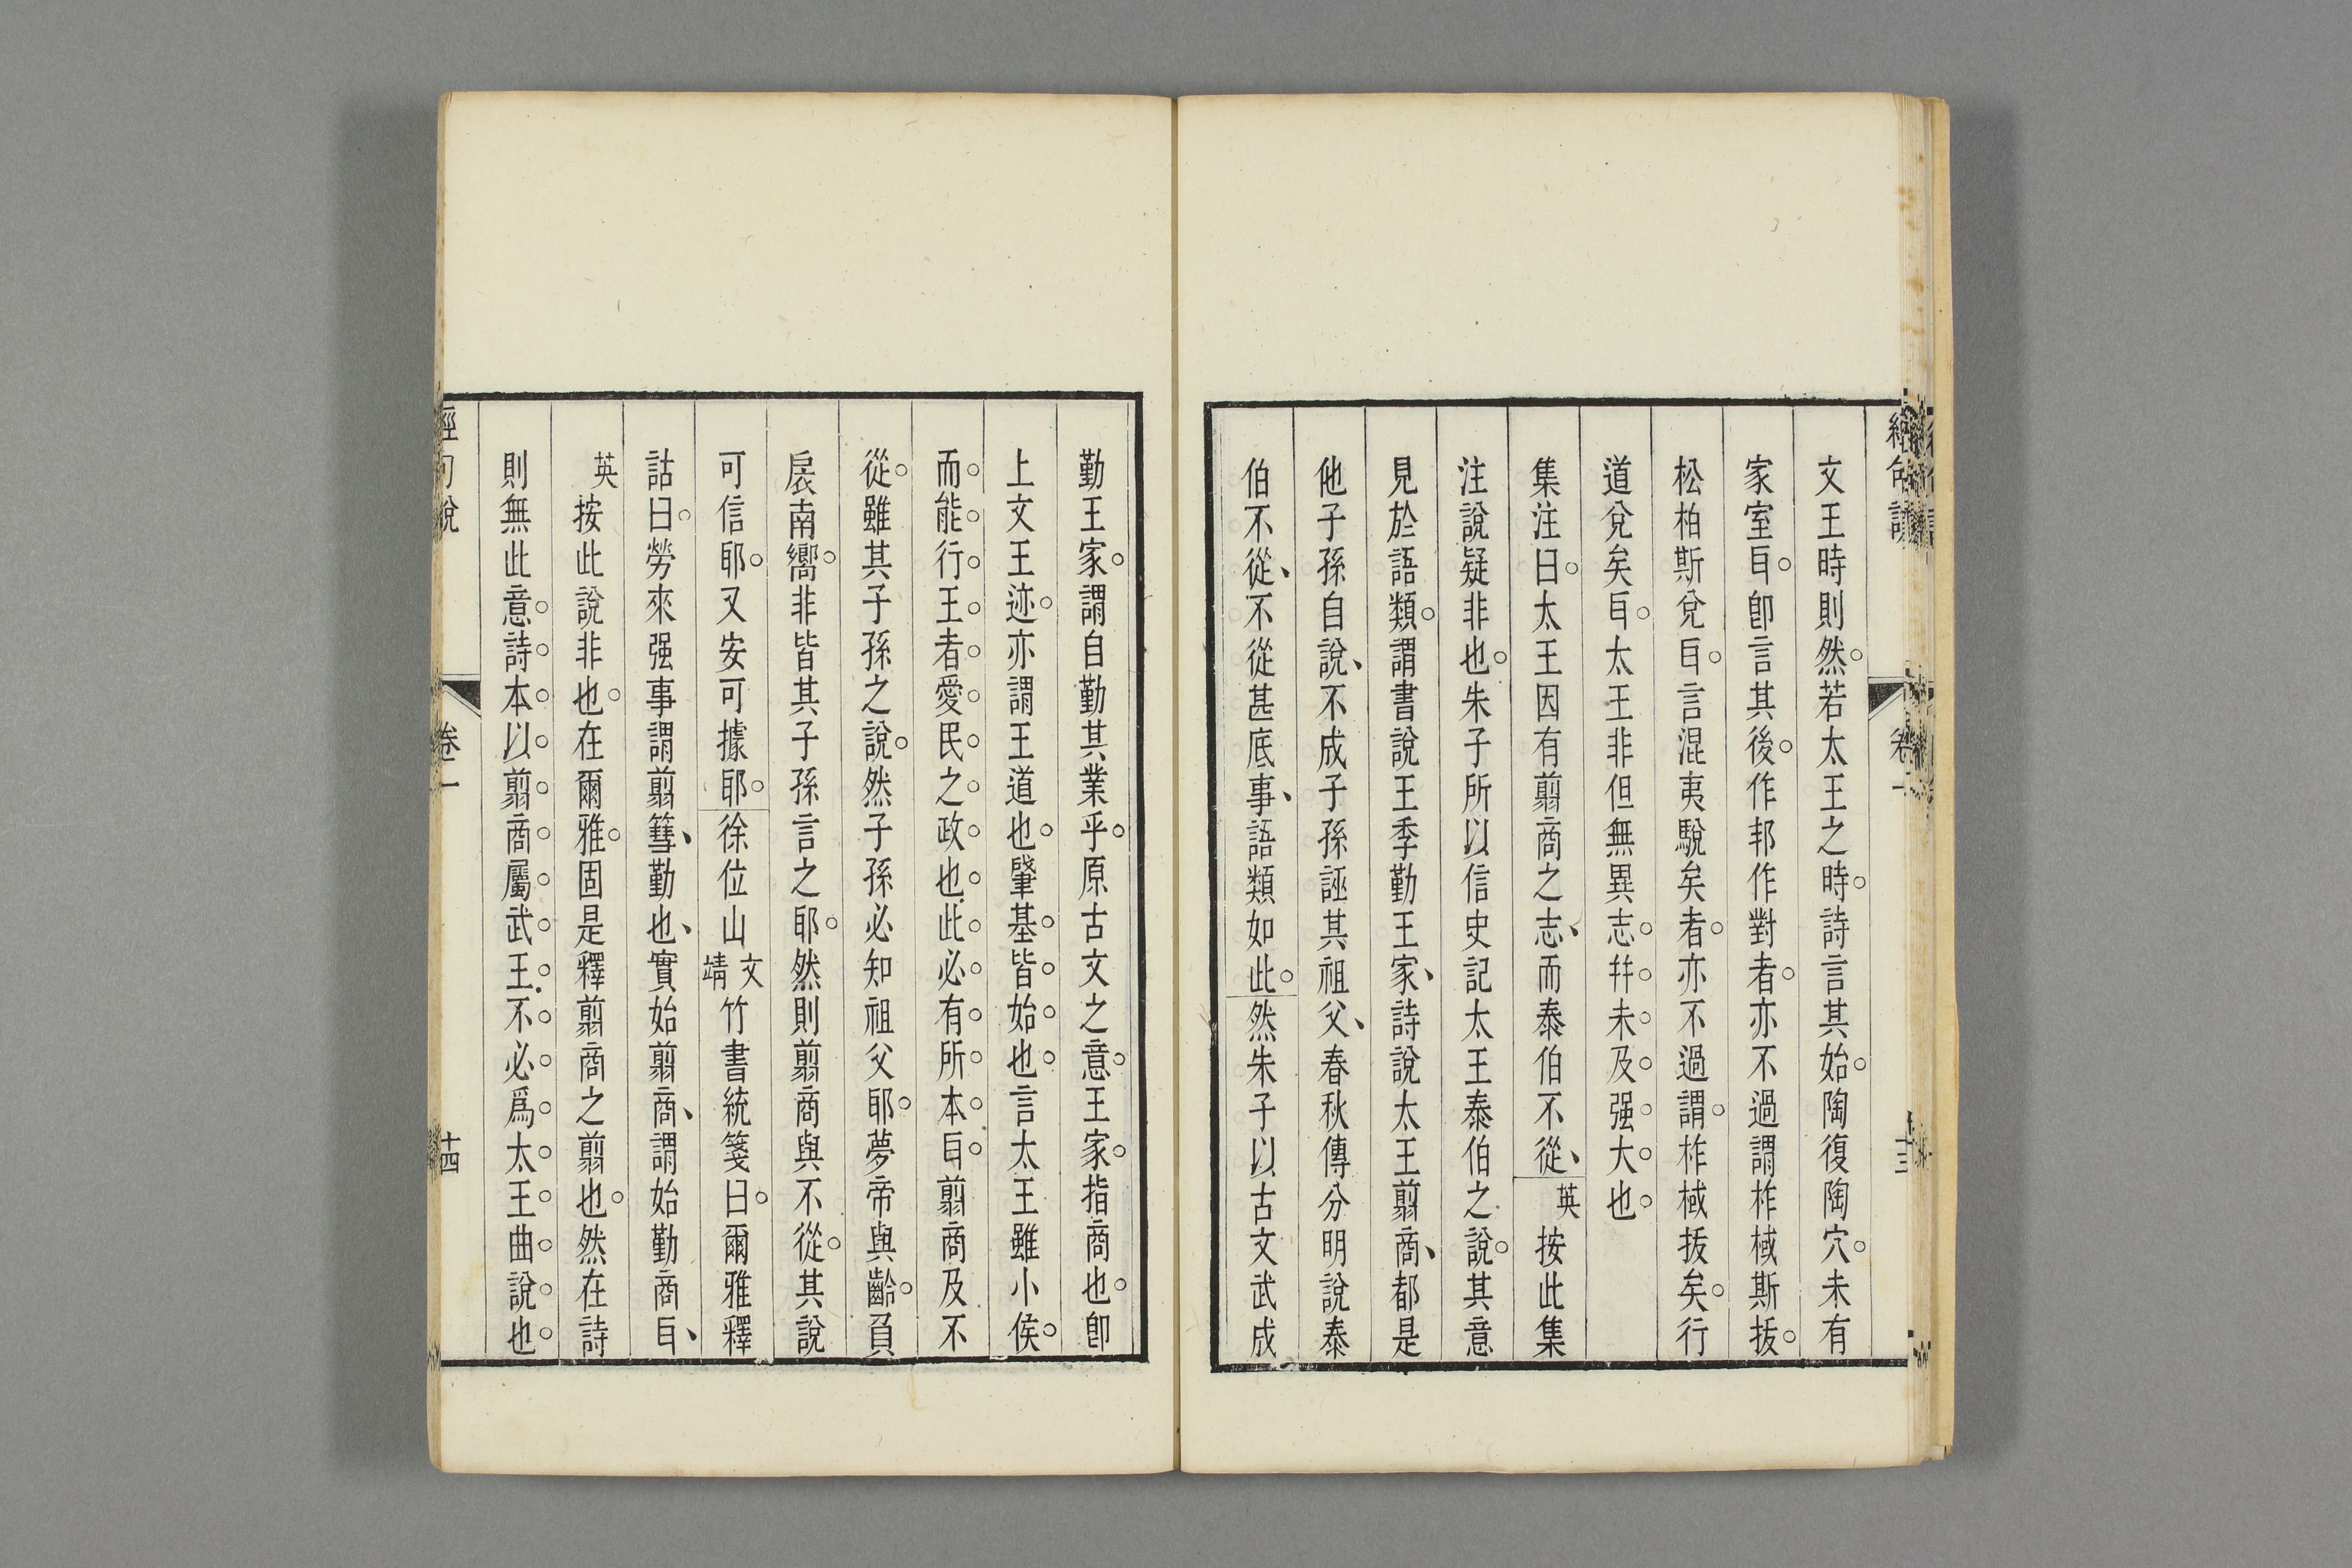 文王時則然若太王之時詩言其始陶復陶穴未有
家室耳卽言其後作邦作對者亦不過謂柞棫斯拔
松柏斯兌耳言混夷駾矣者亦不過謂柞棫拔矣行
道兌矣耳太王非但無異志幷未及强大也
集注曰太王因有翦商之志而泰伯不從英按此集
注說疑非也朱子所以信史記太王泰伯之說其意
見於語類謂書說王季勤王家詩說太王翦商都是
他子孫自說不成子孫誣其祖父春秋傳分明說泰
伯不從不從甚底事語類如此然朱子以古文武成
勤王家謂自勤其業乎原古文之意王家指商也卽
上文王迹亦謂王道也肇基皆始也言太王雖小侯
而能行王者愛民之政也此必有所本耳翦商及不
從雖其子孫之說然子孫必知祖父耶夢帝與齡負
扆南嚮非皆其子孫言之耶然則翦商與不從其說
可信耶又安可據耶徐位山文靖竹書統箋曰爾雅釋
詁曰勞來强事謂翦篲勤也實始翦商謂始勤商耳
英按此說非也在爾雅固是釋翦商之翦也然在詩
則無此意詩本以翦商屬武王不必爲太王曲說也
經句說
卷一
十四